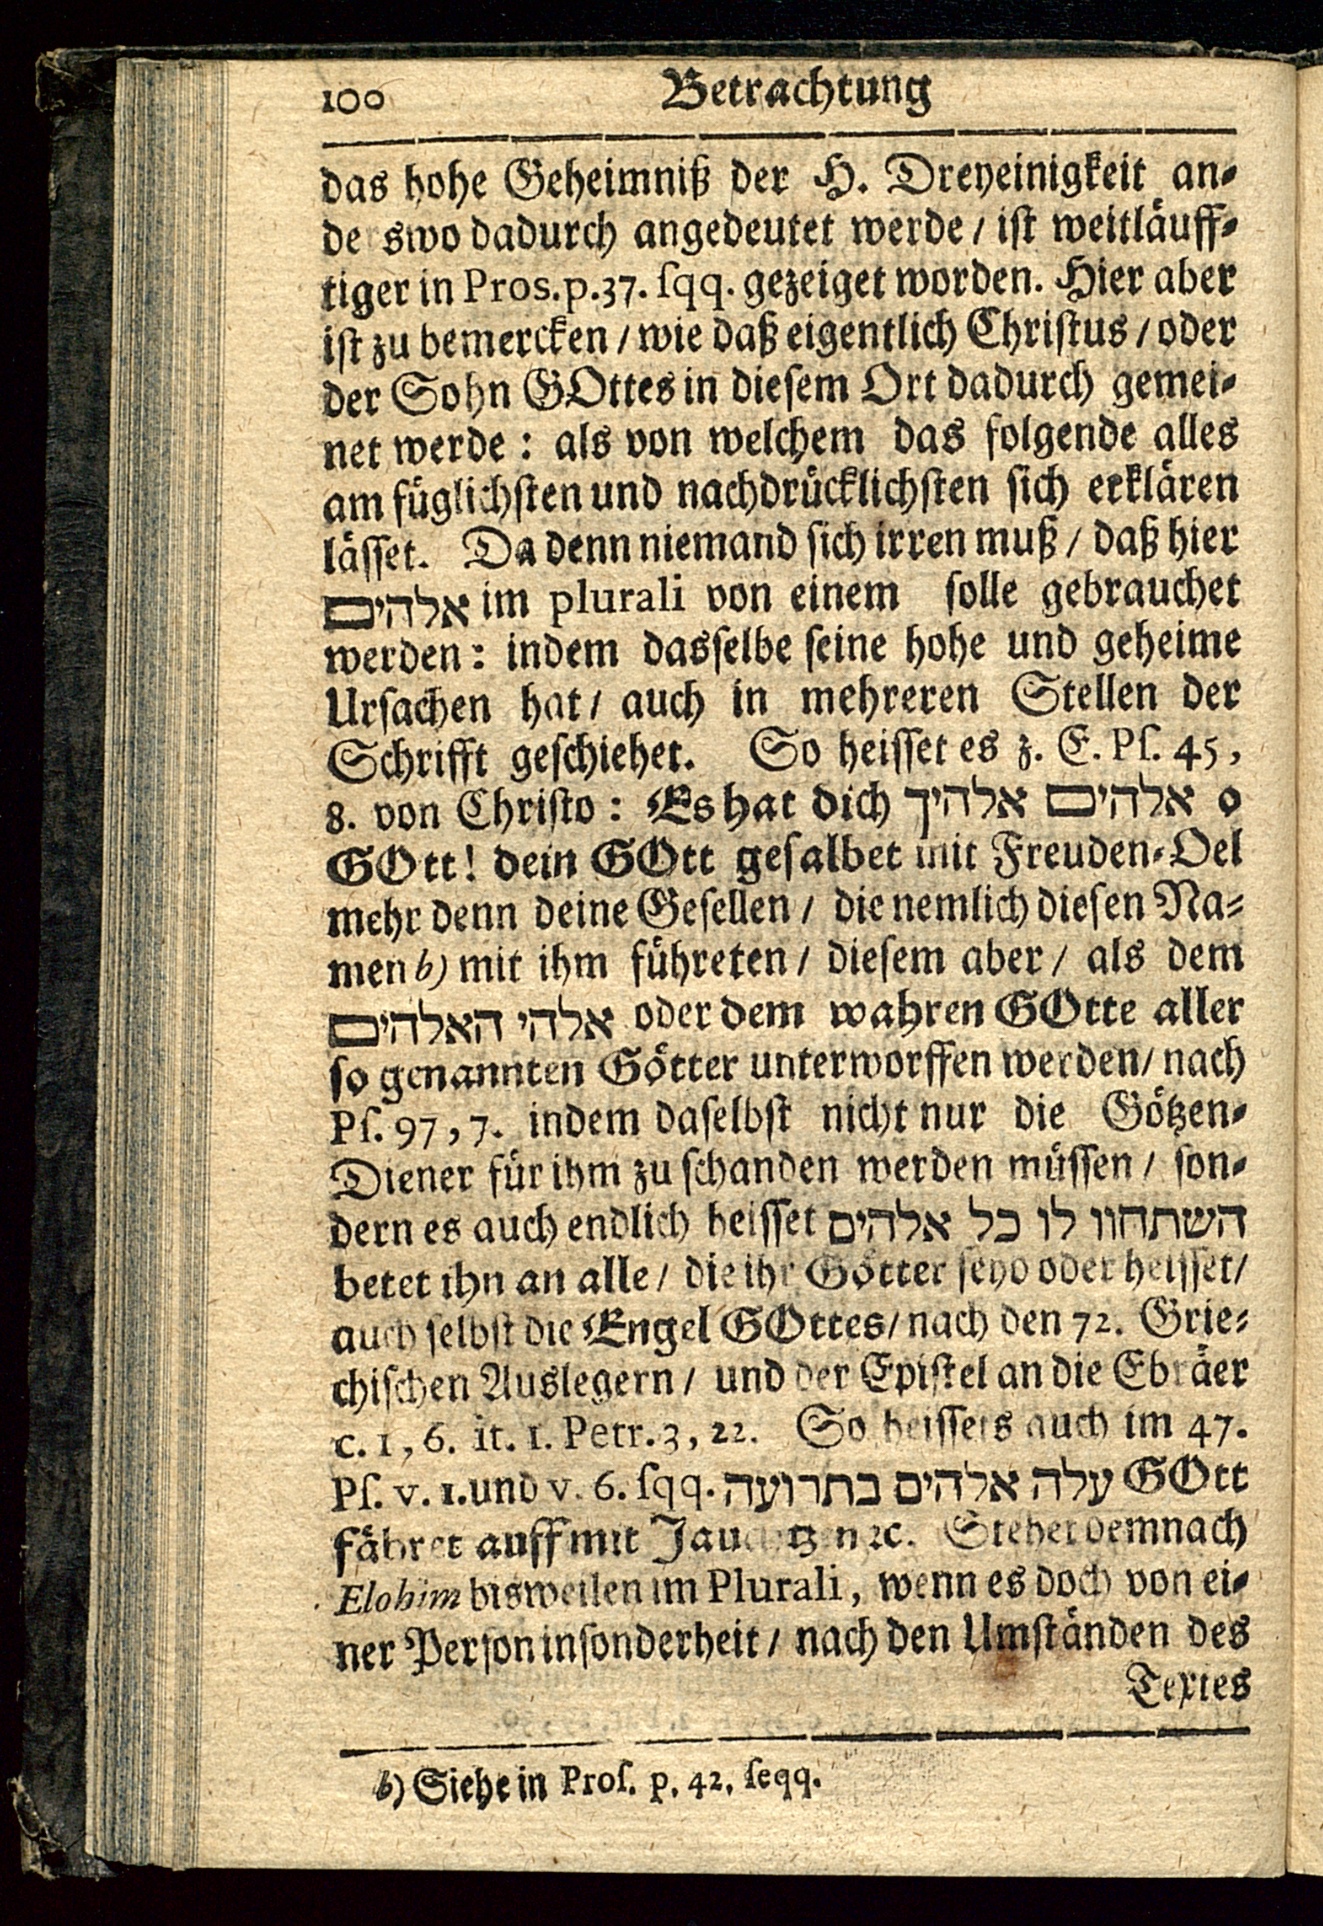 100 Betrachtung
das hohe Geheimniß der H. Dreyeinigkeit an⸗
de swo dadurch angedeutet werde / ist weitläuff⸗
tiger in Pros. p. 37. sqq. gezeiget worden. Hier aber
ist zu bemercken / wie daß eigentlich Christus / oder
der Sohn GOttes in diesem Ort dadurch gemei⸗
net werde : als von welchem das folgende alles
am füglichsten und nachdrücklichsten sich erklären
lässet. Da denn niemand sich irren muß / daß hier
אלהים im plurali von einem solle gebrauchet
werden : indem dasselbe seine hohe und geheime
Ursachen hat / auch in mehreren Stellen der
Schrifft geschiehet. So heisset es z. E. Ps. 45,
8. von Christo : Es hat dich אלהים אלהיך o
GOtt! dein GOtt gesalbet mit Freuden⸗Oel
mehr denn deine Gesellen / die nemlich diesen Na⸗
men b) mit ihm führeten / diesem aber / als dem
אלהי האלהים oder dem wahren GOtte aller
so genannten Götter unterworffen werden / nach
Ps. 97, 7. indem daselbst nicht nur die Götzen⸗
Diener für ihm zu schanden werden müssen / son⸗
dern es auch endlich heisset השתחוו לו כל אלהים
betet ihn an alle / die ihr Götter seyd oder heisset /
auch selbst die Engel GOttes / nach den 72. Grie⸗
chischen Auslegern / und der Epistel an die Ebräer
c. 1, 6. it. 1. Petr. 3, 22. So heissets auch im 47.
Ps. v. 1. und v. 6. sqq. עלה אלהים בתרועה GOtt
fähret auff mit Jauchtzen ꝛc. Stehet demnach
Elohim bisweilen im Plurali, wenn es doch von ei⸗
ner Person insonderheit / nach den Umständen des
Textes
b) Siehe in Pros. p. 42. seqq.